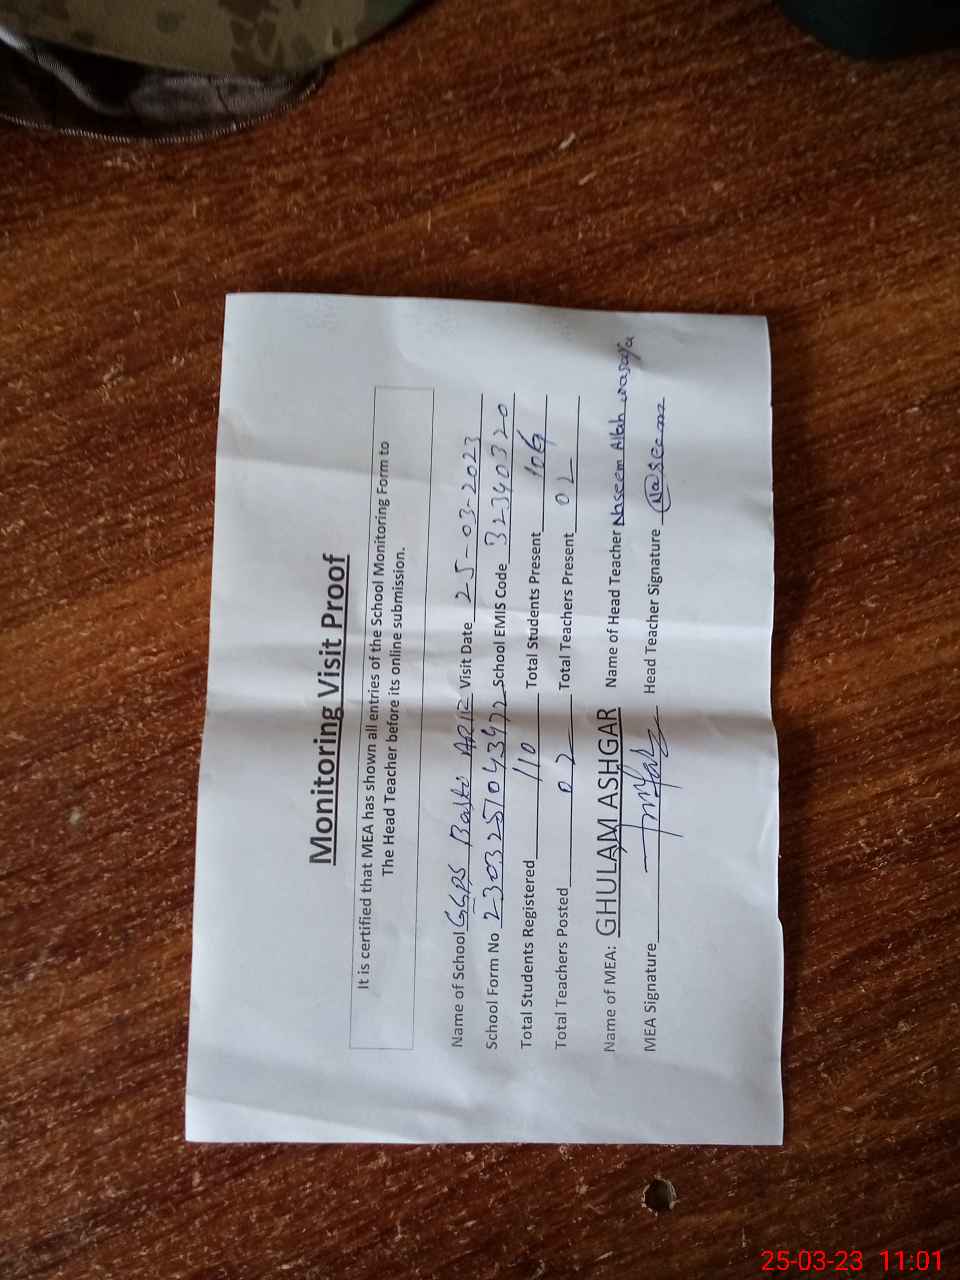 Monitoring Visit Proof
It is certified that MEA has shown all entries of the School Monitoring Form to
The Head Teacher before its online submission.
Name of School GGPS Basti Visit Date 25-03-2023
School Form No 2303251043472 School EMIS Code 32340320
Total Students Registered 110 Total Students Present 106
Total Teachers Posted 02 Total Teachers Present 02
Name of MEA: GHULAM ASHGAR Name of Head Teacher Naseem Allah wasaya
MEA Signature Head Teacher Signature Naseem
25-03-23 11:01